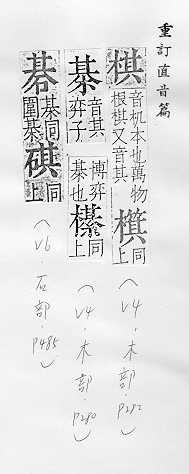 重訂直音篇
棋 音机本也萬物根棋又音其 櫀 同上
棊 音其弈子 博弈棊也 櫀 同上
碁 棊同圍棊 碤 同上
(V4.木部.P282)
(V4.木部.P280)
(V6.石部.P485)